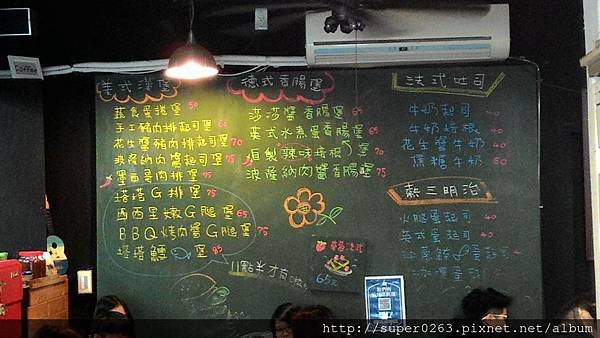 Coffee
美式漢堡
蔬食蛋捲堡 50
手工豬肉排起司堡 65
花生醬豬肉排起司堡 70
波隆納肉醬起司堡 75
墨西哥肉排堡 75
塔塔G排堡 75
西西里嫩G腿堡 65
BBQ烤肉醬G腿堡 75
塔塔鱈堡 85
11點半才有
德式香腸堡
莎莎醬香腸堡 65
英式水煮蛋香腸堡 65
自製辣味培根堡 70
波隆納肉醬香腸堡 75
草莓法式
65元
法式吐司
牛奶起司 40
牛奶培根 40
花生醬牛奶 40
焦糖牛奶 50
熱三明治
火腿蛋起司 40
英式蛋起司 40
http://super0263.pixnet.net/album